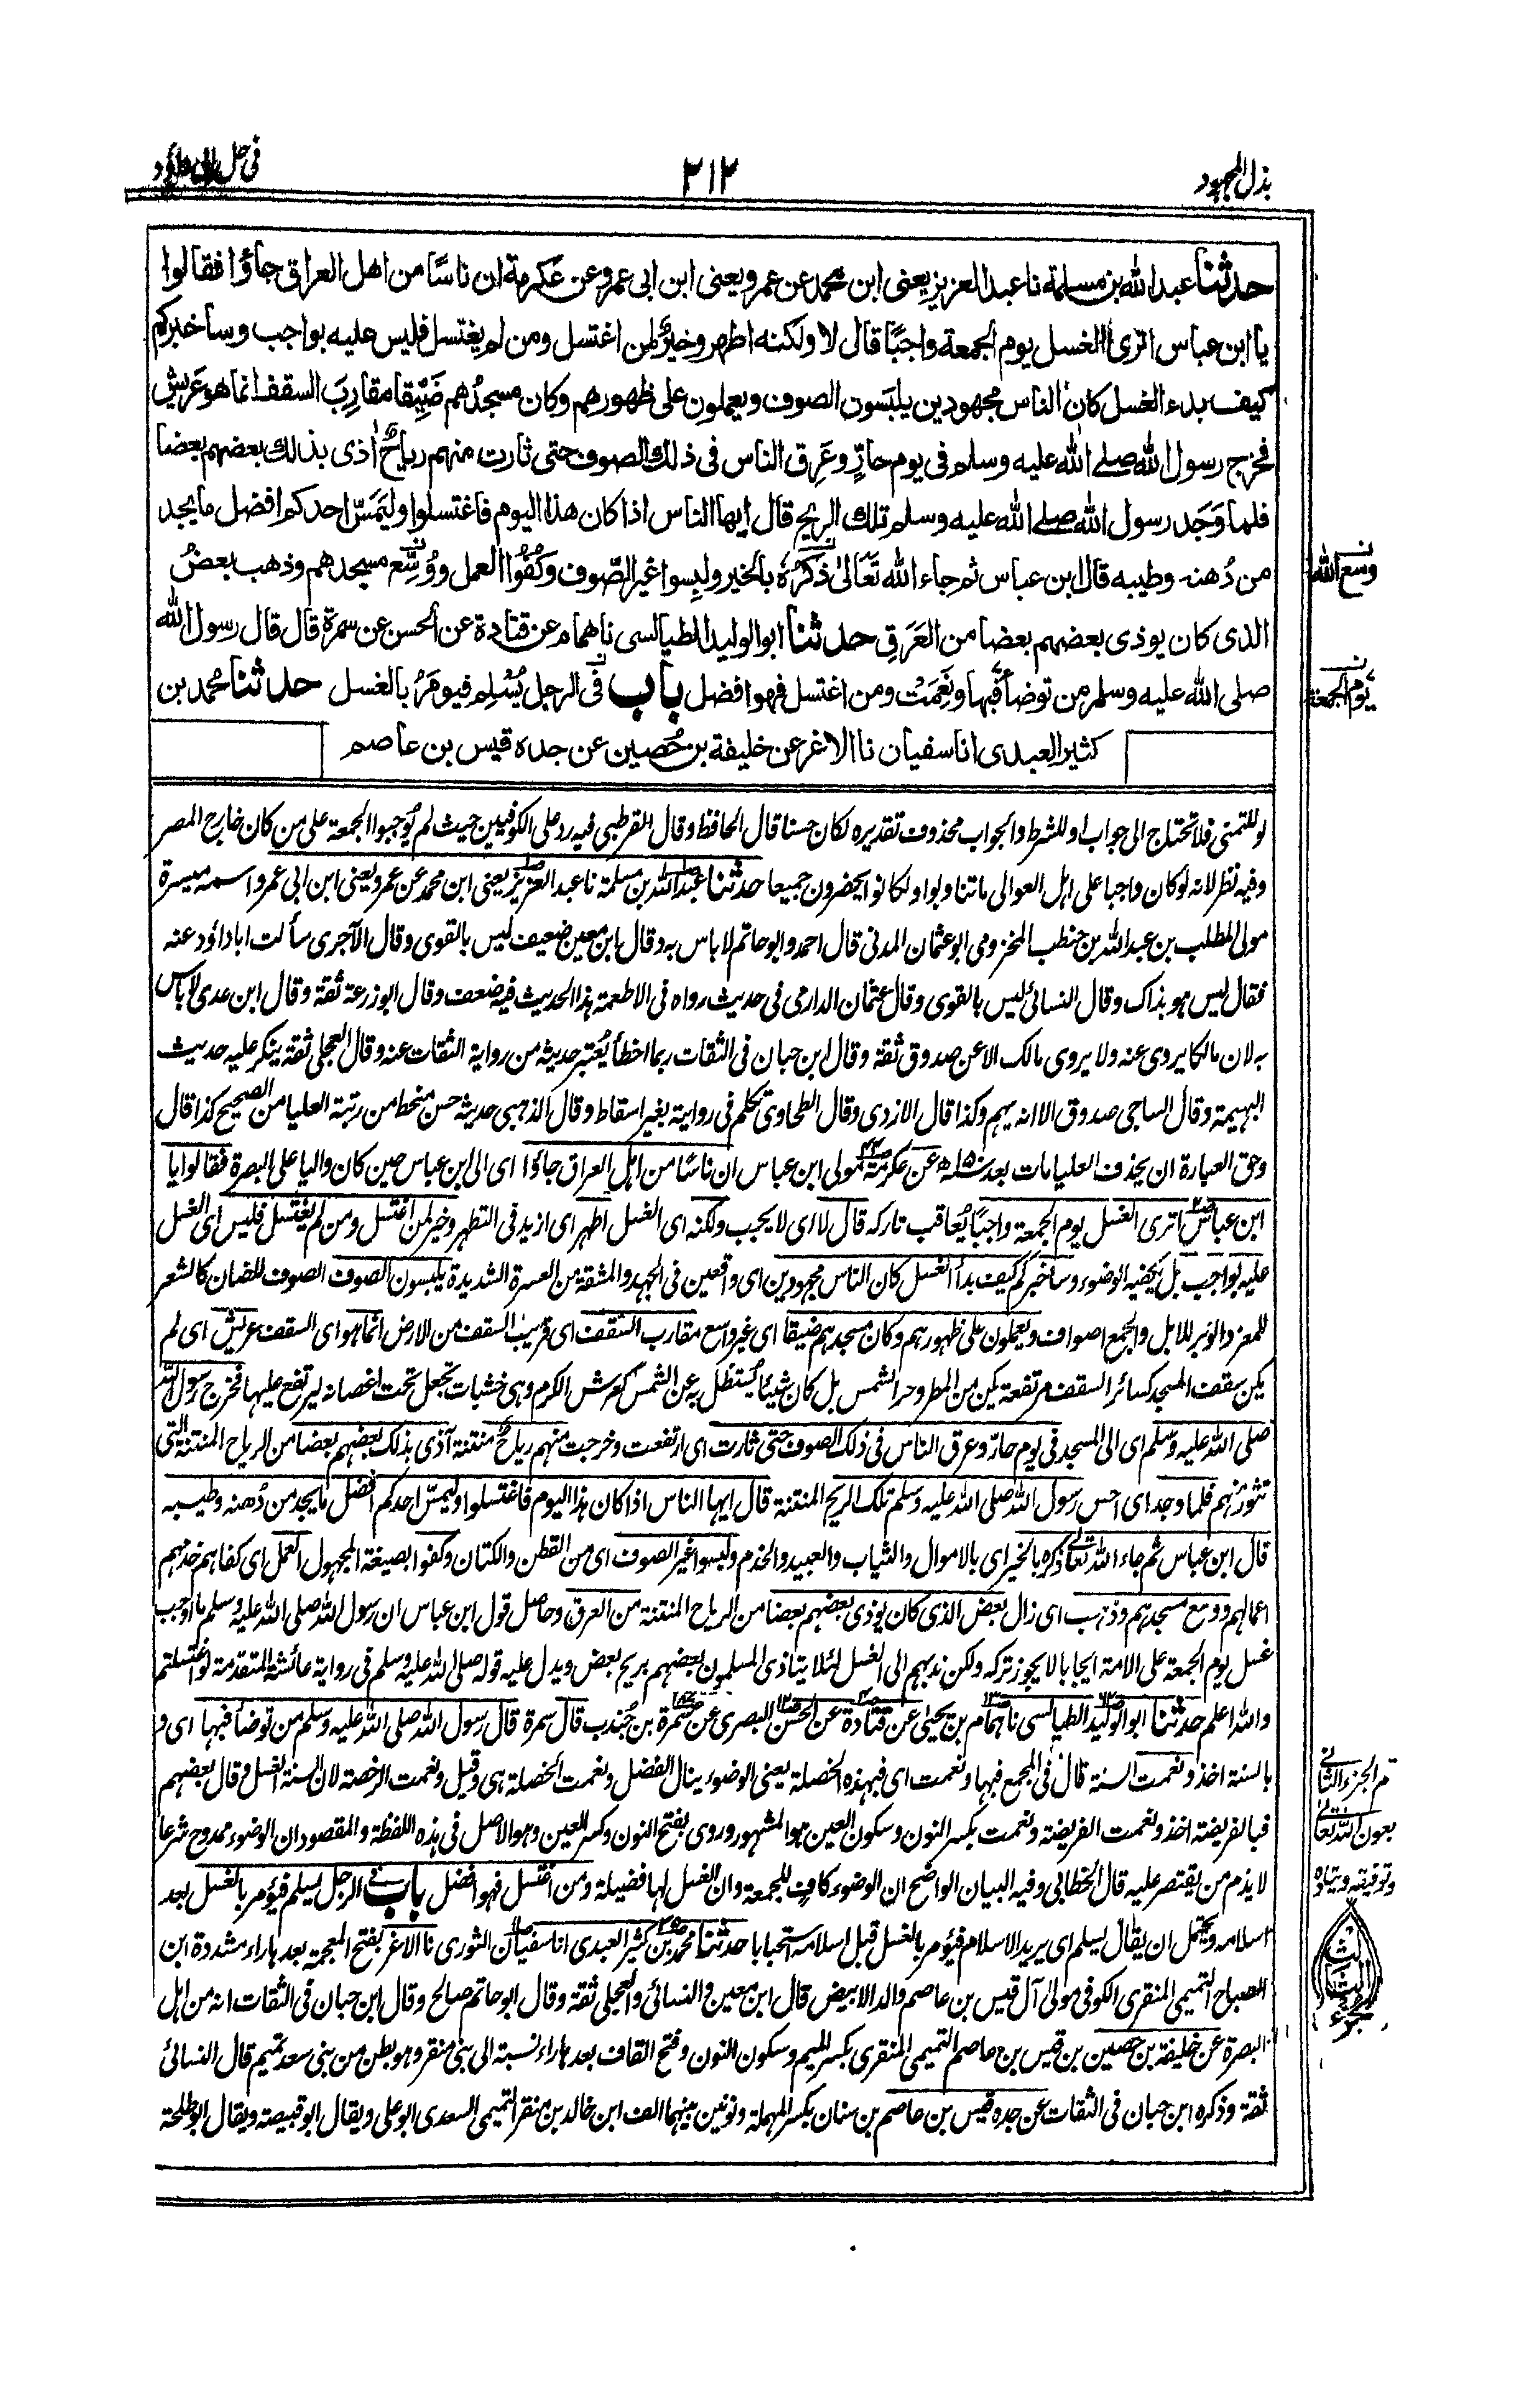 بذل المجهود
٣١٢
في حل ابي داؤد
حدثنا عبد الله بن مسلمة نا عبد العزيز يعني ابن محمد عن عمرو يعني ابن ابي عمرو عن عكرمة ان ناسًا من اهل العراق جاؤا فقالوا
يا ابن عباس اترى الغسل يوم الجمعة واجبًا قال لا ولكنه اطهر وخيرٌ لمن اغتسل ومن لم يغتسل فليس عليه بواجب وساخبركم
كيف بدء الغسل كان الناس مجهودين يلبَسون الصوف ويعملون على ظهورهم وكان مسجدُهم ضَيِّقا مقارِبَ السقف انما هو عَريش
فخرج رسول الله صلى الله عليه وسلم في يوم حارٍّ وعَرِق الناس في ذلك الصوف حتى ثارت منهم رياحٌ اذى بذلك بعضهم بعضا
فلما وَجَد رسول الله صلى الله عليه وسلم تلك الريح قال ايها الناس اذا كان هذا اليوم فاغتسلوا وليَمَسّ احدكم افضل ما يجد
من دُهنه وطيبه قال ابن عباس ثم جاء الله تَعَالىٰ ذكرُهٗ بالخير ولبِسوا غير الصّوف وكُفُوا العمل ووُسِّع مسجدهم وذهب بعضُ
الذى كان يوذى بعضهم بعضا من العَرَقِ حدثنا ابو الوليد الطيالسى نا همام عن قتادة عن الحسن عن سمرة قال قال رسول الله
صلى الله عليه وسلم من توضأ فَبِها ونِعْمَتْ ومن اغتسل فهو افضل باب فى الرجل يُسْلِم فيومَرُ بالغسل حدثنا محمد بن
كثير العبدى انا سفيان نا الاغر عن خليفة بن حُصين عن جده قيس بن عاصم
وسع الله
يوم الجمعة
لو للتمنى فلا تحتاج الى جواب او للشرط والجواب محذوف تقديره لكان حسنا قال الحافظ وقال القرطبى فيه رد على الكوفيين حيث لم يُوجبوا الجمعة على من كان خارج المصر
وفيه نظر لانه لو كان واجبا على اهل العوالى ما تناوبوا ولكانوا يحضرون جميعا حدثنا عبد الله بن مسلمة نا عبد العزيز يعنى ابن محمد عن عمرو يعنى ابن ابى عمرو اسمه ميسرة
مولى المطلب بن عبد الله بن حنطب المخزومى ابو عثمان المدنى قال احمد وابو حاتم لا باس به وقال ابن معين ضعيف ليس بالقوى وقال الآجرى سألت ابا داؤد عنه
فقال ليس هو بذاك وقال النسائى ليس بالقوى وقال عثمان الدارمى فى حديث رواه فى الاطعمة هذا الحديث فيه ضعف وقال ابو زرعة ثقة وقال ابن عدى لا باس
به لان مالكا يروى عنه ولا يروى مالك الا عن صدوق ثقة وقال ابن حبان فى الثقات ربما اخطأ يُعتبر حديثه من رواية الثقات عنه وقال العجلى ثقة ينكر عليه حديث
البهيمة وقال الساجى صدوق الا انه يهم وكذا قال الازدى وقال الطحاوى تكلم فى روايته بغير اسقاط وقال الذهبى حديثه حسن منحط من رتبة العليا من الصحيح كذا قال
وحق العبارة ان يحذف العليا مات بعد عن عكرمة مولى ابن عباس ان ناسًا من اهل العراق جاؤا اى الى ابن عباس حين كان واليا على البصرة فقالوا يا
ابن عباس اترى الغسل يوم الجمعة واجبًا يُعاقب تاركه قال لا اى لا يجب ولكنه اى الغسل اطهر اى ازيد فى التطهر وخير لمن اغتسل ومن لم يغتسل فليس اى الغسل
عليه بواجب بل يكفيه الوضوء وساخبركم كيف بدأ الغسل كان الناس مجهودين اى واقعين فى الجهد والمشقة من العسرة الشديدة يلبسون الصوف الصوف للضان كالشعر
للمعز والوبر للابل والجمع اصواف ويعملون على ظهورهم وكان مسجدهم ضيقا اى غير واسع مقارب السقف اى قريب السقف من الارض انما هو اى السقف عريش اى لم
يكن سقف المسجد كسائر السقف مرتفعة يكن من المطر وحر الشمس بل كان شيئا يُستظل به عن الشمس كعرش الكرم وهى خشبات تجعل تحت اغصانه ليرتفع عليها فخرج رسول الله
صلى الله عليه وسلم اى الى المسجد فى يوم حارّ وعرق الناس فى ذلك الصوف حتى ثارت اى ارتفعت وخرجت منهم رياح منتنة آذى بذلك بعضهم بعضا من الرياح المنتنة التى
تثور منهم فلما وجد اى احس رسول الله صلى الله عليه وسلم تلك الريح المنتنة قال ايها الناس اذا كان هذا اليوم فاغتسلوا وليمسّ احدكم افضل ما يجد من دُهنه وطيبه
قال ابن عباس ثم جاء الله تعالى ذكره بالخير اى بالاموال والثياب والعبيد والخدم ولبسوا غير الصوف اى من القطن والكتان وكفوا بصيغة المجهول العمل اى كفاهم خدمهم
اعمالهم ووسع مسجدهم وذهب اى زال بعض الذى كان يوذى بعضهم بعضا من الرياح المنتنة من العرق وحاصل قول ابن عباس ان رسول الله صلى الله عليه وسلم ما اوجب
غسل يوم الجمعة على الامة ايجابا لا يجوز تركه ولكن ندبهم الى الغسل لئلا يتاذى المسلمون بعضهم بريح بعض ويدل عليه قوله صلى الله عليه وسلم فى رواية عائشة المتقدمة لو اغتسلتم
والله اعلم حدثنا ابو الوليد الطيالسى نا همام بن يحيى عن قتادة عن الحسن البصرى عن سمرة بن جُندب قال سمرة قال رسول الله صلى الله عليه وسلم من توضأ فبها اى و
بالسنة اخذ ونعمت السنة قال فى المجمع فبها ونعمت اى فبهذه الخصلة يعنى الوضوء ينال الفضل ونعمت الخصلة هى وقيل ونعمت الرخصة لان السنة الغسل وقال بعضهم
فبالفريضة اخذ ونعمت الفريضة ونعمت بكسر النون وسكون العين هو المشهور وروى بفتح النون وكسر العين وهو الاصل فى هذه اللفظة والمقصود ان الوضوء ممدوح شرعا
لا يذم من يقتصر عليه قال الخطابى وفيه البيان الواضح ان الوضوء كافٍ للجمعة وان الغسل لها فضيلة ومن اغتسل فهو افضل باب فى الرجل يسلم فيؤمر بالغسل بعد
اسلامه ويحتمل ان يقال يسلم اى يريد الاسلام فيؤمر بالغسل قبل اسلامه استحبابا حدثنا محمد بن كثير العبدى انا سفيان الثورى نا الاغر بفتح المعجمة بعدها راء مشددة ابن
الصباح التميمى المنقرى الكوفى مولى آل قيس بن عاصم والد الابيض قال ابن معين والنسائى والعجلى ثقة وقال ابو حاتم صالح وقال ابن حبان فى الثقات انه من اهل
البصرة عن خليفة بن حصين بن قيس بن عاصم التميمى المنقرى بكسر الميم وسكون النون وفتح القاف بعدها راء نسبة الى بنى منقر وهو بطن من بنى سعد تميم قال النسائى
ثقة وذكره ابن حبان فى الثقات عن جده قيس بن عاصم بن سنان بكسر المهملة ونونين بينهما الف ابن خالد بن منقر التميمى السعدى ابو على ويقال ابو قبيصة ويقال ابو طلحة
تم الجزء الثانى
بعون الله تعالى
وتوفيقه ويتلوه
الجزء الثالث